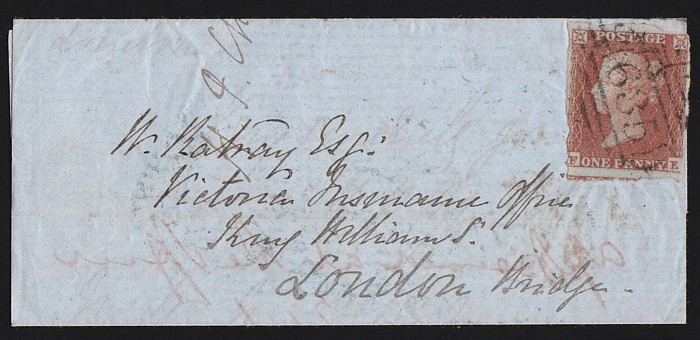 London
POSTAGE
635
F ONE PENNY E
W. Ratray Esq:
Victoria Insurance Office
King William St.
London Bridge.